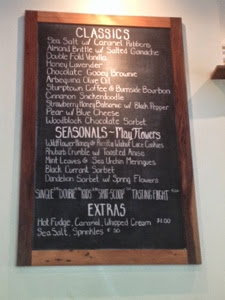 CLASSICS
Sea Salt w/ Caramel Ribbons
Almond Brittle w/ Salted Ganache
Double Fold Vanilla
Honey Lavender
Chocolate Gooey Brownie
Arbequina Olive Oil
Stumptown Coffee & Burnside Bourbon
Cinnamon Snickerdoodle
Strawberry Honey Balsamic w/ Black Pepper
Pear w/ Blue Cheese
Woodblock Chocolate Sorbet
SEASONALS - May Flowers
Wildflower Honey & Ricotta Walnut Lace Cookies
Rhubarb Crumble w/ Toasted Anise
Mint Leaves & Sea Urchin Meringues
Black Currant Sorbet
Dandelion Sorbet w/ Spring Flowers
SINGLE DOUBLE KIDS SPLIT SCOOP TASTING FLIGHT
EXTRAS
Hot Fudge, Caramel, Whipped Cream
Sea Salt, Sprinkles